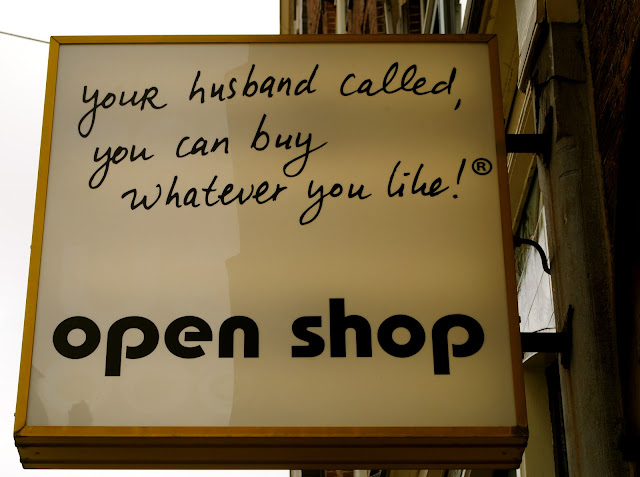 your husband called,
you can buy
whatever you like!®
open shop